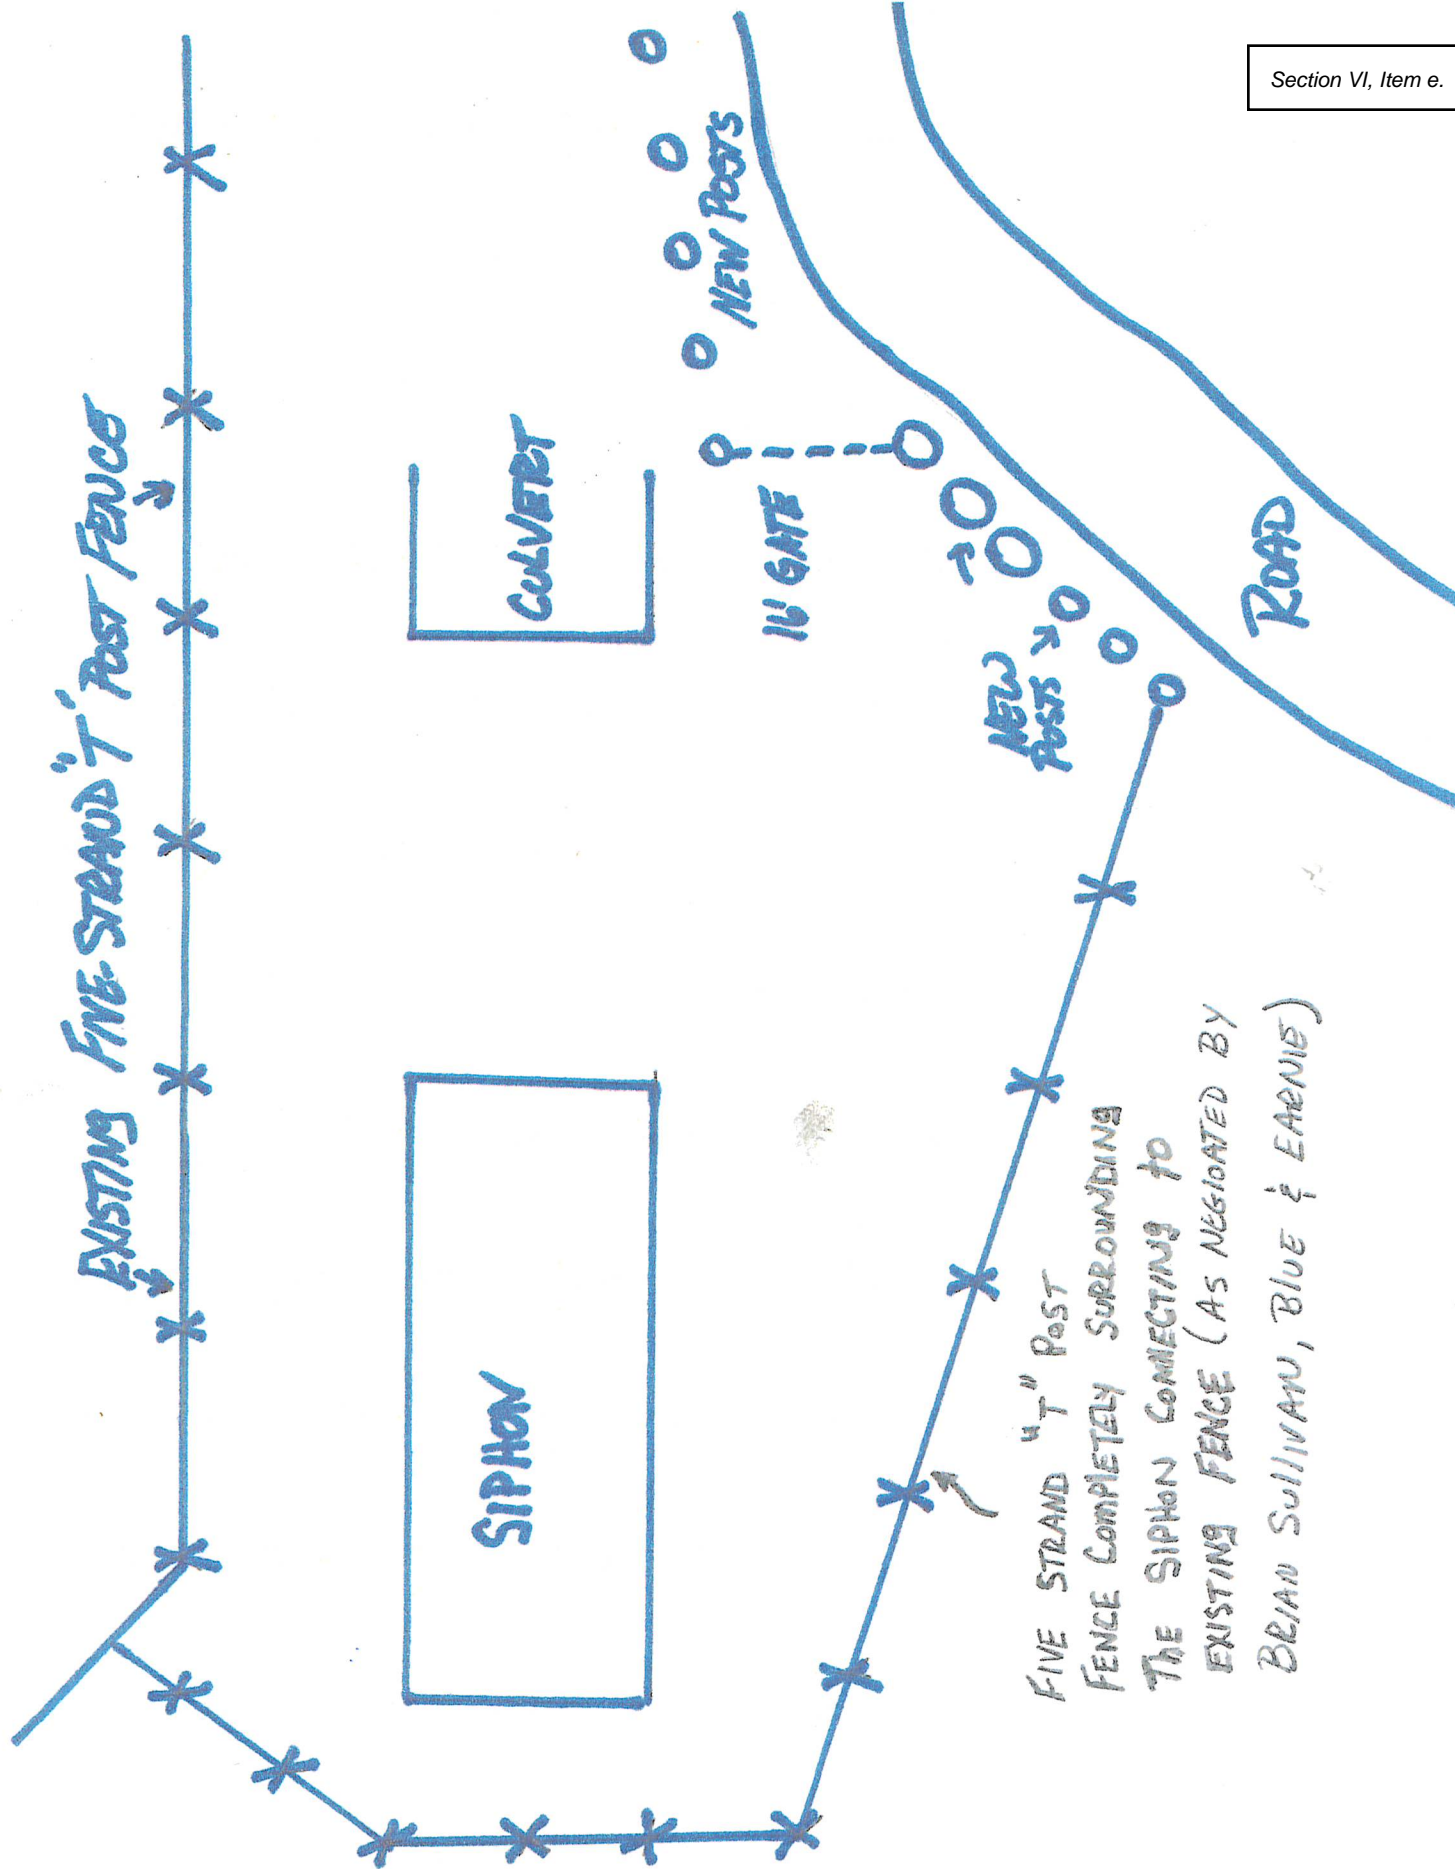 Section VI, Item e.
EXISTING FIVE-STRAND "T" POST FENCE
SIPHON
CULVERT
NEW POSTS
16' GATE
NEW
POSTS
ROAD
FIVE STRAND "T" POST
FENCE COMPLETELY SURROUNDING
THE SIPHON CONNECTING to
EXISTING FENCE (AS NEGIOATED BY
BRIAN SULLIVAN, BLUE & EARNIE)